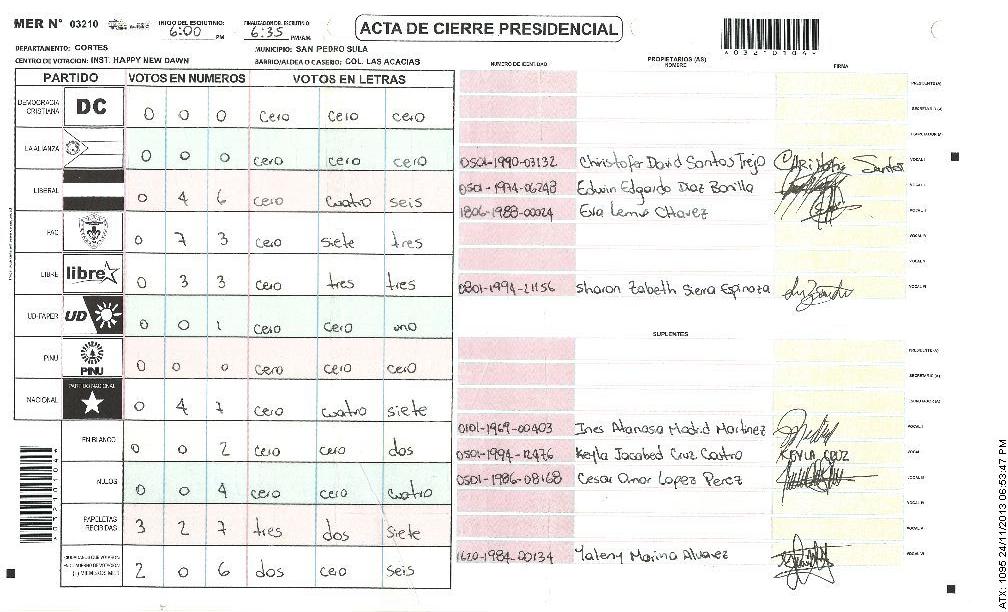 MER N° 03210
INICIO DEL ESCRUTINIO: 6:00 PM
FINALIZACION DEL ESCRUTINIO: 6:35 PM/AM
ACTA DE CIERRE PRESIDENCIAL
DEPARTAMENTO: CORTES
MUNICIPIO: SAN PEDRO SULA
CENTRO DE VOTACION: INST. HAPPY NEW DAWN
BARRIO/ALDEA O CASERIO: COL. LAS ACACIAS
PARTIDO VOTOS EN NUMEROS VOTOS EN LETRAS
DEMOCRACIA CRISTIANA DC 0 0 0 cero cero cero
LA ALIANZA 0 0 0 cero cero cero
LIBERAL 0 4 6 cero cuatro seis
PAC 0 7 3 cero siete tres
LIBRE libre 0 3 3 cero tres tres
UD-FAPER UD 0 0 1 cero cero uno
PINU PINU 0 0 0 cero cero cero
NACIONAL PARTIDO NACIONAL 0 4 7 cero cuatro siete
EN BLANCO 0 0 2 cero cero dos
NULOS 0 0 4 cero cero cuatro
PAPELETAS RECIBIDAS 3 2 7 tres dos siete
2 0 6 dos cero seis
NUMERO DE IDENTIDAD PROPIETARIOS (AS) NOMBRE FIRMA
PRESIDENTE(A)
SECRETARIO (A)
ESCRUTADOR(A)
0501-1990-03132 Christofer David Santos Trejo Christofer Santos VOCAL I
0501-1974-06248 Edwin Edgardo Diaz Bonilla VOCAL II
1806-1988-00024 Eva Lemus Chavez VOCAL III
VOCAL IV
VOCAL V
0801-1994-21156 Sharon Zabeth Sierra Espinoza VOCAL VI
SUPLENTES
PRESIDENTE(A)
SECRETARIO (A)
ESCRUTADOR(A)
0101-1969-00403 Ines Atanasa Madrid Martinez VOCAL I
0501-1994-12476 Keyla Jacabed Cruz Castro KEYLA CRUZ VOCAL II
0501-1986-08168 Cesar Omar Lopez Perez VOCAL III
VOCAL IV
VOCAL V
1620-1984-00134 Yaleny Marina Alvarez VOCAL VI
ATX: 1095 24/11/2013 06:53:47 PM